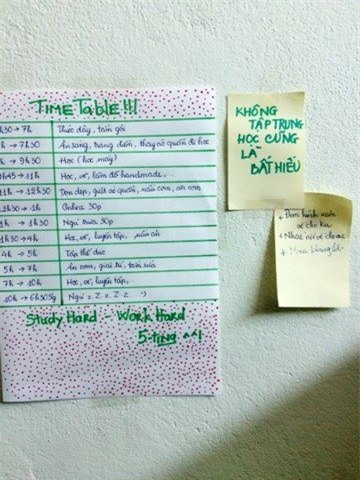 TIMETABLE!!!
h30 → 7h Thức dậy, tắm gội
h → 7h30 Ăn sáng, trang điểm, thay áo quần đi học
h → 9h30 Học (học máy)
h45 → 11h Học, vẽ, làm đồ handmade,...
h → 12h30 Dọn dẹp, giặt áo quần, nấu cơm, ăn cơm
12h30 → 1h Online 30p
h → 1h30 Ngủ trưa 30p
1h30 → 4h Học, vẽ, luyện tập, nấu ăn
4h → 5h Tập thể dục
5h → 7h Ăn cơm, giải trí, tắm rửa
7h → 10h Học, vẽ, luyện tập,
10h → 6h30Sg Ngủ z z z z :)
Study Hard - Work Hard
5-TING ^^!
KHÔNG
TẬP TRUNG
HỌC CŨNG
LÀ
BẤT HIẾU
+ Đem hình xăm
vẽ cho
+ Nhắc
+ Mua